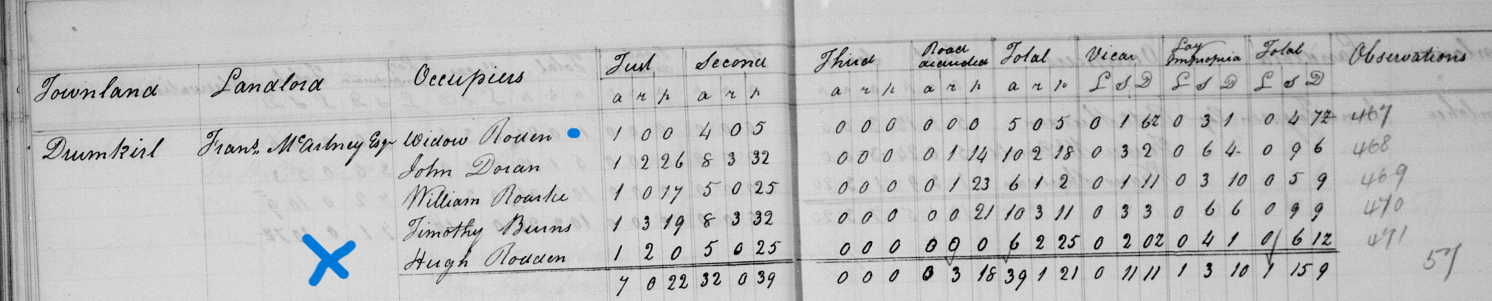 Townland Landlord Occupiers First Second Third Road deducted Total Vicar Lay Impropria Total Observations
a r p a r p a r p a r p a r p £ S D £ S D £ S D
Drumkirl Frans. McCartney Esqr Widow Rodden 1 0 0 4 0 5 0 0 0 0 0 0 5 0 5 0 1 6½ 0 3 1 0 4 7½ 467
John Doran 1 2 26 8 3 32 0 0 0 0 1 14 10 2 18 0 3 2 0 6 4 0 9 6 468
William Rourke 1 0 17 5 0 25 0 0 0 0 1 23 6 1 2 0 1 11 0 3 10 0 5 9 469
Timothy Burns 1 3 19 8 3 32 0 0 0 0 0 21 10 3 11 0 3 3 0 6 6 0 9 9 470
Hugh Rodden 1 2 0 5 0 25 0 0 0 0 0 0 6 2 25 0 2 0½ 0 4 1 0 6 1½ 471
7 0 22 32 0 39 0 0 0 0 3 18 39 1 21 0 11 11 1 3 10 1 15 9 57